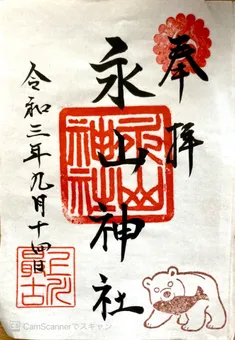 奉拝
永山神社
令和三年九月十四日
永山
神社
CamScannerでスキャン